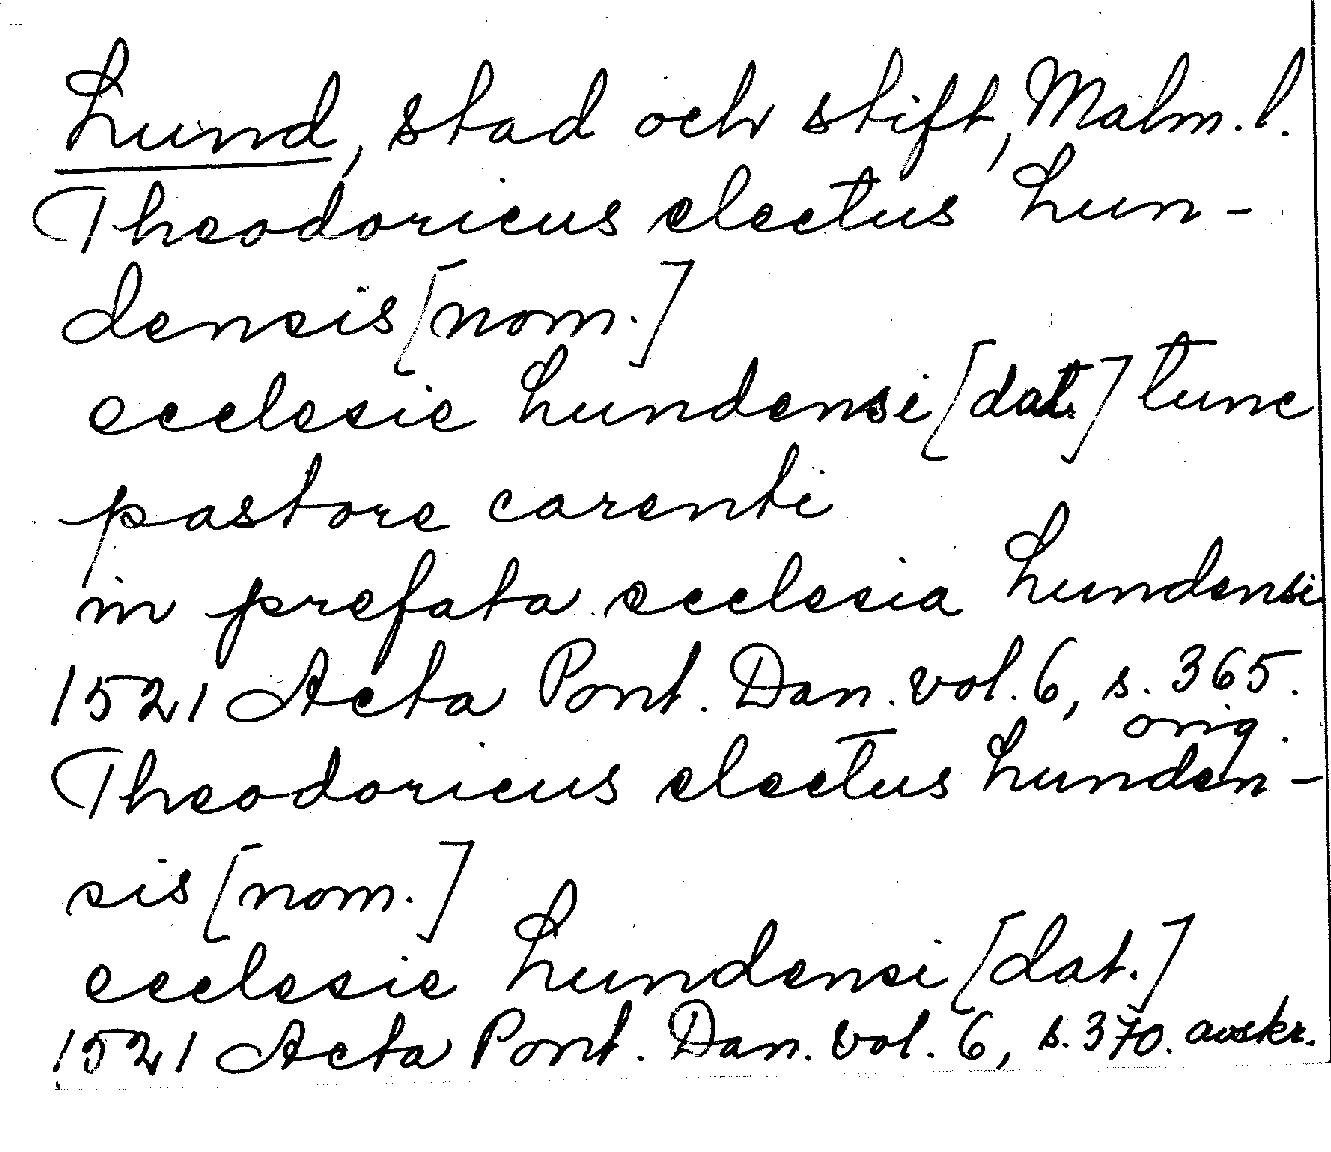 Lund, stad och stift, Malm. l.
Theodoricus electus Lun-
densis [nom.]
ecclesie Lundensi [dat.] tunc
pastore carenti
in prefata ecclesia Lundensi
1521 Acta Pont. Dan. vol. 6, s. 365.
orig.
Theodoricus electus Lunden-
sis [nom.]
ecclesie Lundensi [dat.]
1521 Acta Pont. Dan. vol. 6, s. 370. avskr.